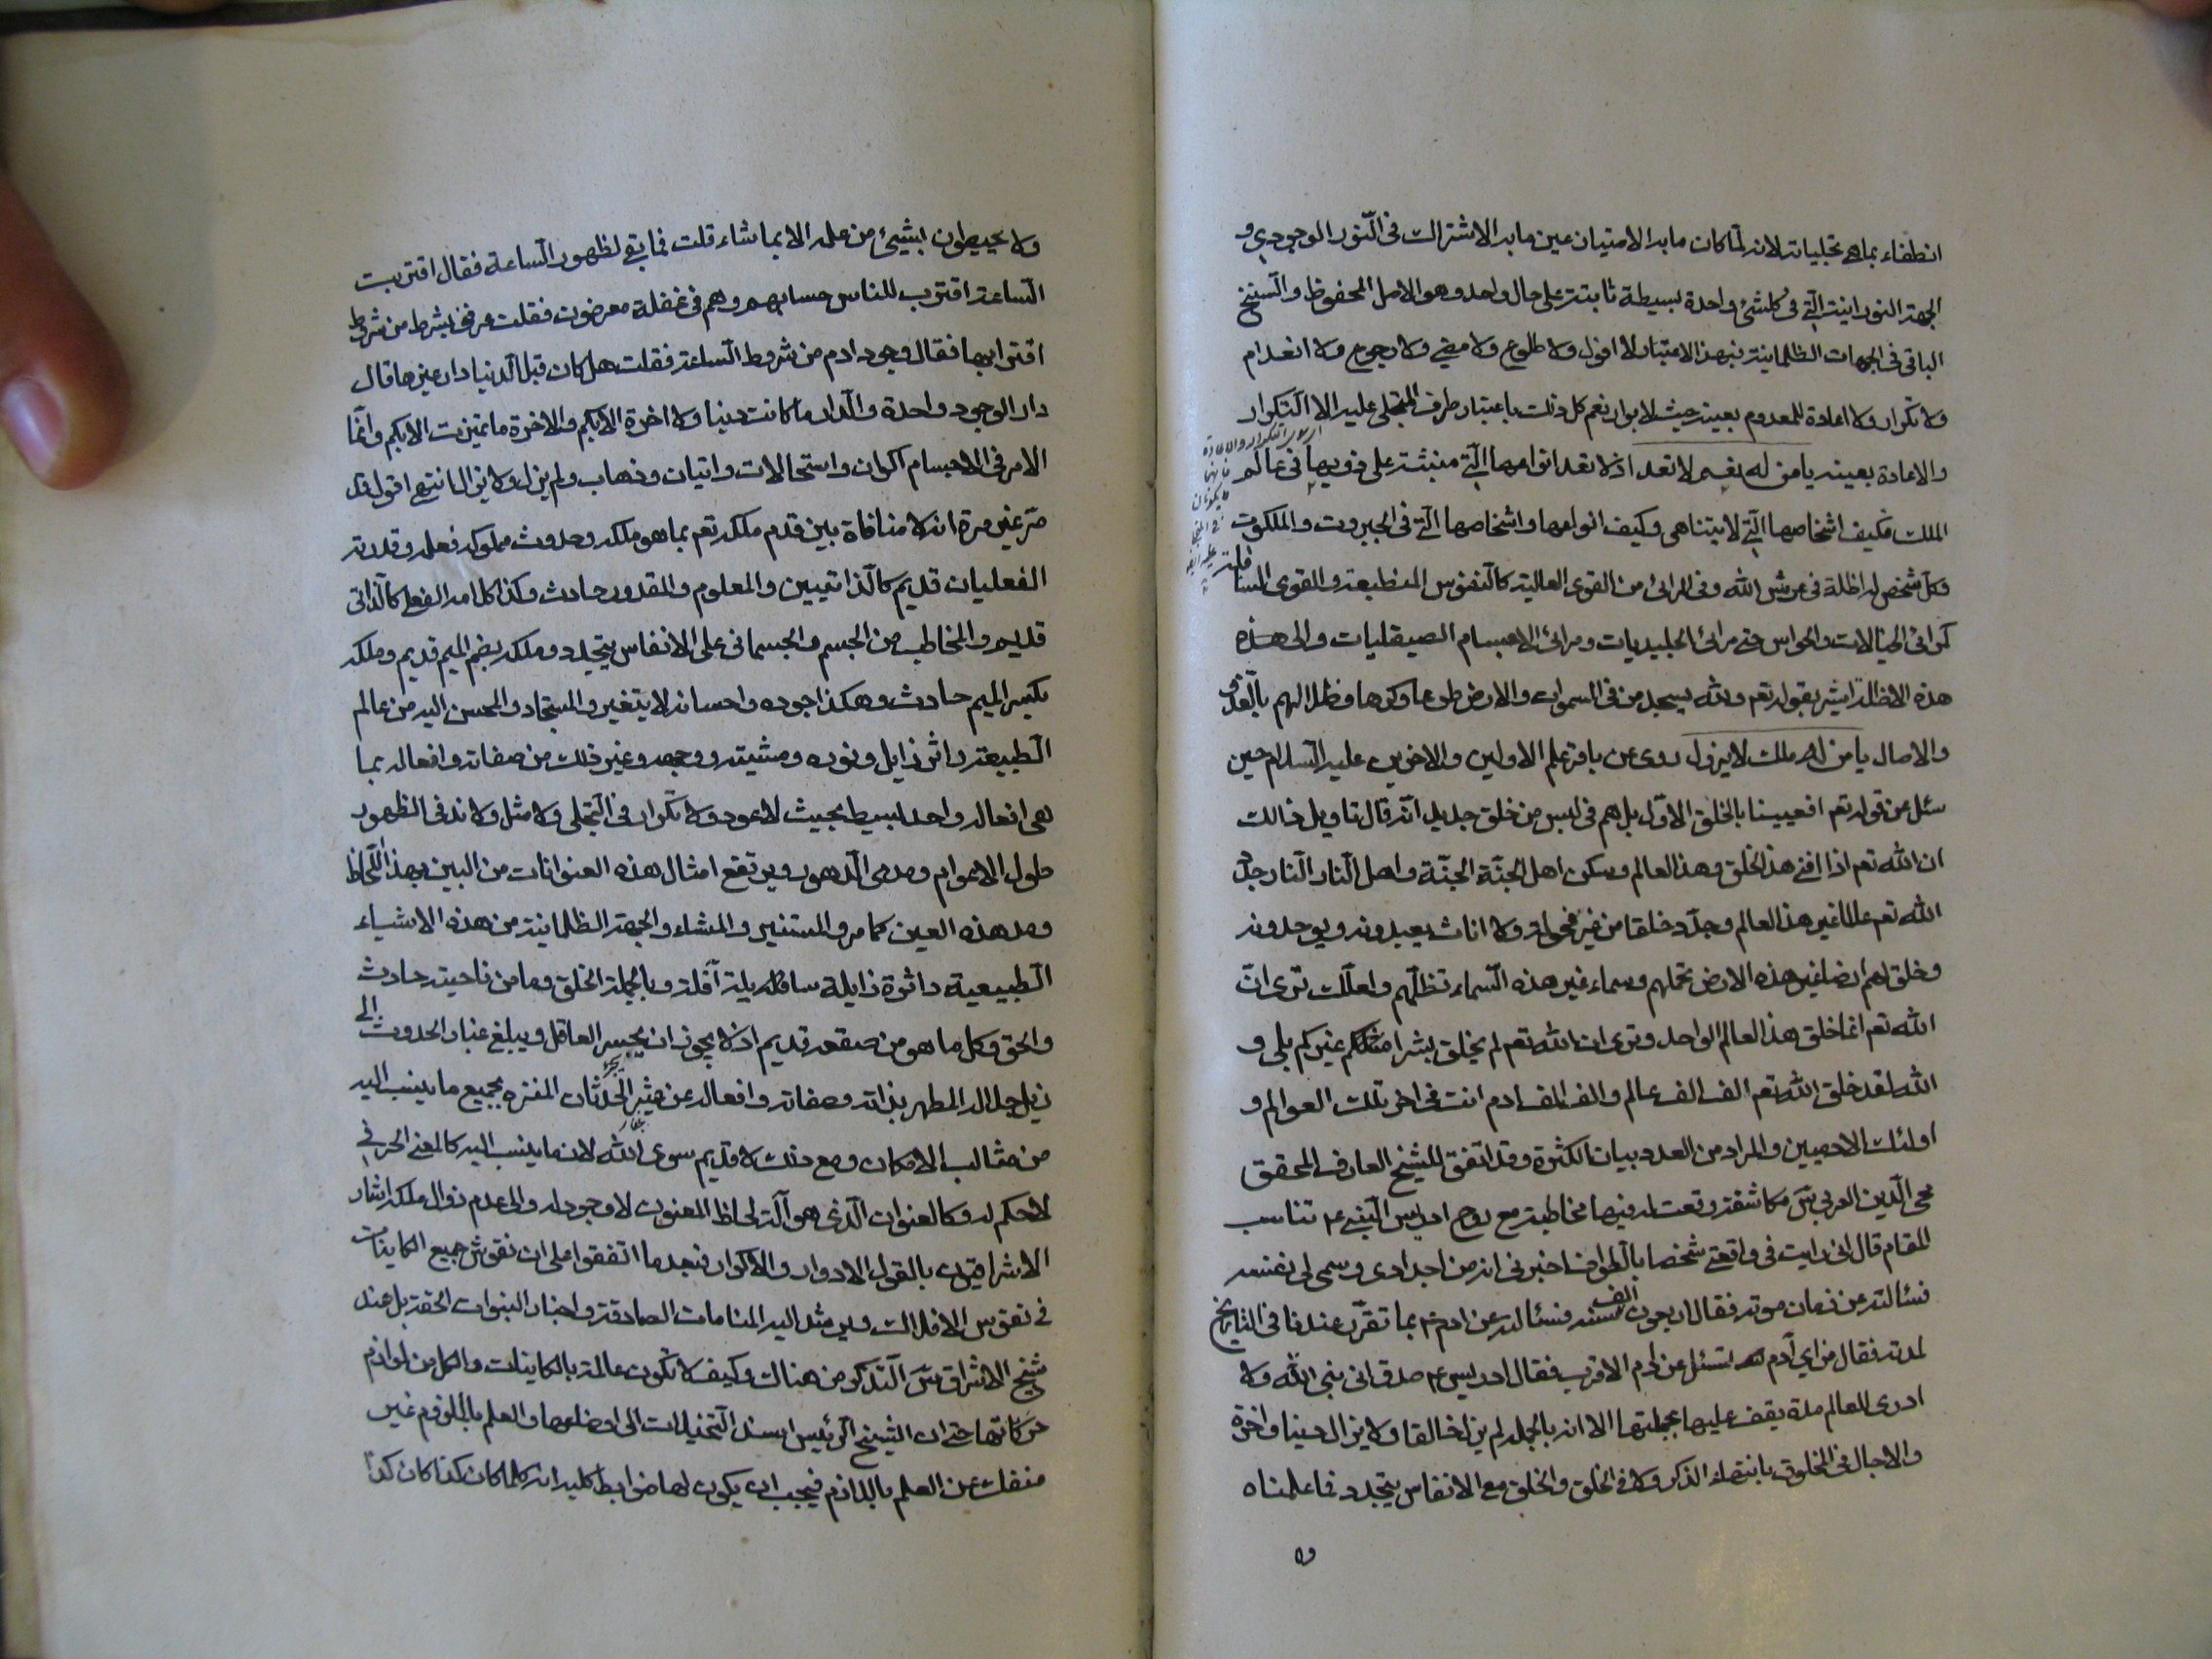 انطفاء بما هى تجليات لانه لما كان ما به الامتياز عين ما به الاشتراك فى النور الوجودى و
الجهة النورانية التى فى كلشئ واحدة بسيطة ثابتة على حال واحد وهو الاصل المحفوظ والسنخ
الباقى فى الجهات الظلمانية فبهذا الاعتبار لا افول ولا طلوع ولا مضى ولا رجوع ولا انعدام
ولا تكرار ولا اعادة للمعدوم بعينه حيث لا بوار نعم كل ذلك باعتبار طرف المتجلى عليه الا التكرار
والاعادة بعينه يا من له نعم لا تعد اذ لا تعد انواعها التى منبثة على ذويها فى عالم
الملك فكيف اشخاصها التى لا يتناهى وكيف انواعها واشخاصها التى فى الجبروت والملكوت
وكل شخص له اظلة فى عرش الله وفى المرائى من القوى العالية كالنفوس المنطبعة والقوى السافلة
كمرائى الخيالات والحواس حتى مرائى الجليديات ومرائى الاجسام الصيقليات والى هذه
هذه الاظلة اشير بقوله تعم ولله يسجد من فى السموات والارض طوعا وكرها وظلالهم بالغدو
والاصال يا من له ملك لا يزول روى عن باقر علم الاولين والاخرين عليه السلام حين
سئل عن قوله تعم افعيينا بالخلق الاول بل هم فى لبس من خلق جديد انه قال تاويل ذلك
ان الله تعم اذا افنى هذا الخلق وهذا العالم وسكن اهل الجنة الجنة واهل النار النار جدد
الله تعم عالما غير هذا العالم وجدد خلقا من غير فحولة ولا اناث يعبدونه ويوحدونه
وخلق لهم ارضا غير هذه الارض تحملهم وسماء غير هذه السماء تظلهم ولعلك ترى ان
الله تعم انما خلق هذا العالم الواحد وترى ان الله تعم لم يخلق بشرا مثلكم غيركم بلى و
الله لقد خلق الله تعم الف الف عالم والف الف ادم انت فى اخر تلك العوالم و
اولئك الادميين والمراد من العدد بيان الكثرة وقد اتفق للشيخ العارف المحقق
محى الدين العربى س مكاشفة وقعت له فيها مخاطبة مع روح ادريس النبى ع تناسب
المقام قال انى رايت فى واقعتى شخصا بالطواف اخبرنى انه من اجدادى وسمى لى نفسه
فسألته عن زمان موته فقال اربعون الف سنة فسألته عن ادم ع بما تقرر عندنا فى التاريخ
لمدته فقال من اى آدم تسئل عن ادم الاقرب فقال ادريس ع صدق انى نبى الله ولا
ادرى للعالم مدة يقف عليها بجملتها الا انه بالجملة لم يزل خالقا ولا يزال دنيا واخرة
والاجال فى المخلوق بانتهاء الذكر ولا فى الخلق والخلق مع الانفاس يتجدد فما علمناه
ولا يحيطون بشيئ من علمه الا بما شاء قلت فما بقى لظهور الساعة فقال اقتربت
الساعة اقترب للناس حسابهم وهم فى غفلة معرضون فقلت عرفنى بشرط من شروط
اقترابها فقال وجود ادم من شروط الساعة فقلت هل كان قبل الدنيا دار غيرها قال
دار الوجود واحدة والدار ما كانت دنيا ولا اخرة الا بكم والاخرة ما تميزت الا بكم وانما
الامر فى الاجسام اكوان واستحالات واتيان وذهاب ولم يزل ولا يزال انتهى اقول قد
مر غير مرة انه لا منافاة بين قدم ملكه تعم بما هو ملكه وحدوث مملوكه فعلمه وقدرته
الفعليان قديم كالذاتيين والمعلوم والمقدور حادث وكذا كلامه الفعلى كالذاتى
قديم والمخاطب من الجسم والجسمانى على الانفاس يتجدد وملكه بضم الميم قديم وملكه
بكسر الميم حادث وهكذا جوده واحسانه لا يتغير والمستجاد والمحسن اليه من عالم
الطبيعة داثر زايل ونوره ومشيته ووجهه وغير ذلك من صفاته وافعاله بما
هى افعاله واحد بسيط بحيث لا عود ولا تكرار فى التجلى ولا مثل ولا ند فى الظهور
طول الاعوام ومدى الدهور ويرتفع امثال هذه العنوانات من البين بهذا اللحاظ
وبهذه العين كما مر والمستنير والمشاء والجهة الظلمانية من هذه الاشياء
الطبيعية داثرة زايلة سافلة آفلة وبالجملة الخلق وما من ناحيته حادث
والحق وكل ما هو من صقعه قديم اذ لا يجوز ان يجسر العاقل ويبلغ غبار الحدوث الى
ذيل جلاله المطهر بذاته وصفاته وافعاله عن الحدثان المنزه بجميع ما ينسب اليه
من مثالب الامكان ومع ذلك لا قديم سوى الله لان ما ينسب اليه كالمعنى الحرفى
لا حكم له وكالعنوان الذى هو آلة لحاظ المعنون لا وجود له والى عدم زوال ملكه اشار
الاشراقيون بالقول الادوار والاكوار فبعد ما اتفقوا على ان نقوش جميع الكاينات
فى نفوس الافلاك ويرشد اليه المنامات الصادقة واخبار النبوات الحقة بل عند
شيخ الاشراق س التذكر من هناك وكيف لا تكون عالمة بالكاينات والكل من لوازم
حركاتها حتى ان الشيخ الرئيس اسند التخيلات الى اوضاعها والعلم بالملزوم غير
منفك عن العلم باللازم فيجب ان يكون لها ضوابط كلية انه كلما كان كذا كان كذا